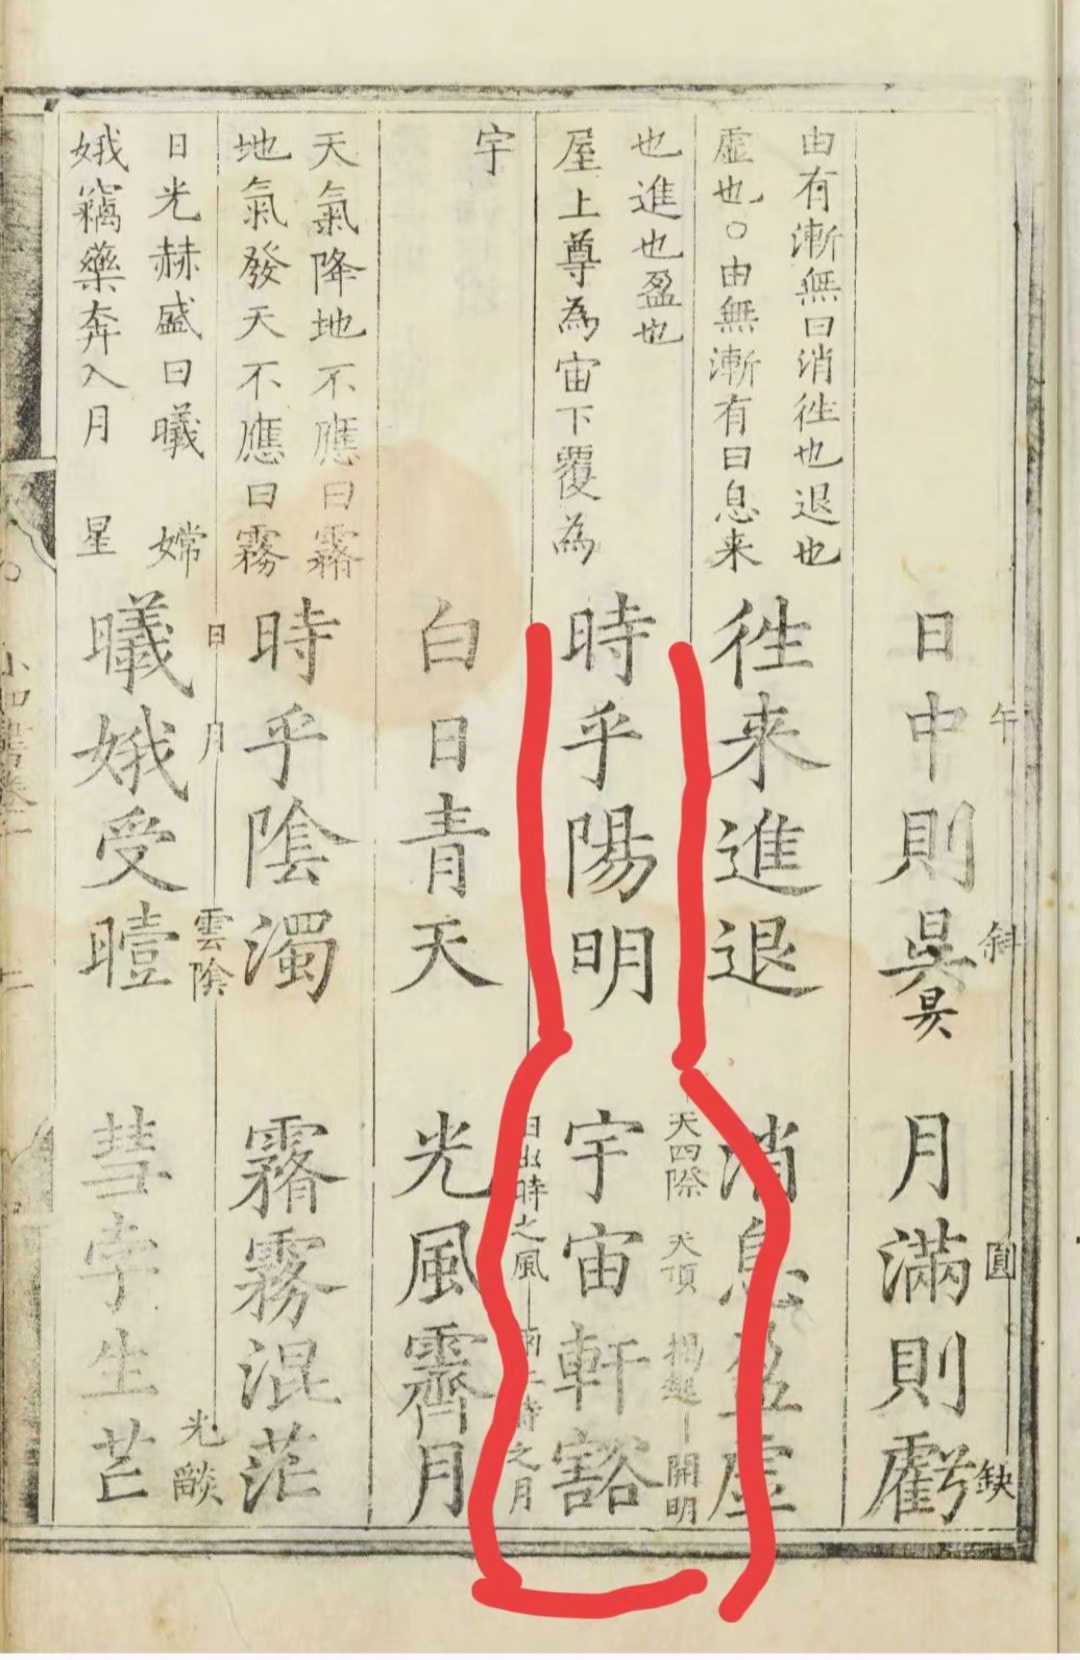 日中則昃
昃
月滿則虧
午
斜
圓
缺
由有漸無曰消徃也退也
虛也○由無漸有曰息来
徃来進退
消息盈虛
也進也盈也
屋上尊為宙下覆為
時乎陽明
宇宙軒豁
天四際
天頂
開明
宇
白日青天
光風霽月
日出時之風
之月
天氣降地不應曰霿
地氣發天不應曰霧
時乎陰濁
霿霧混茫
日光赫盛曰曦 嫦
娥竊藥奔入月 星
曦娥受曀
彗孛生芒
日
月
雲陰
光燄